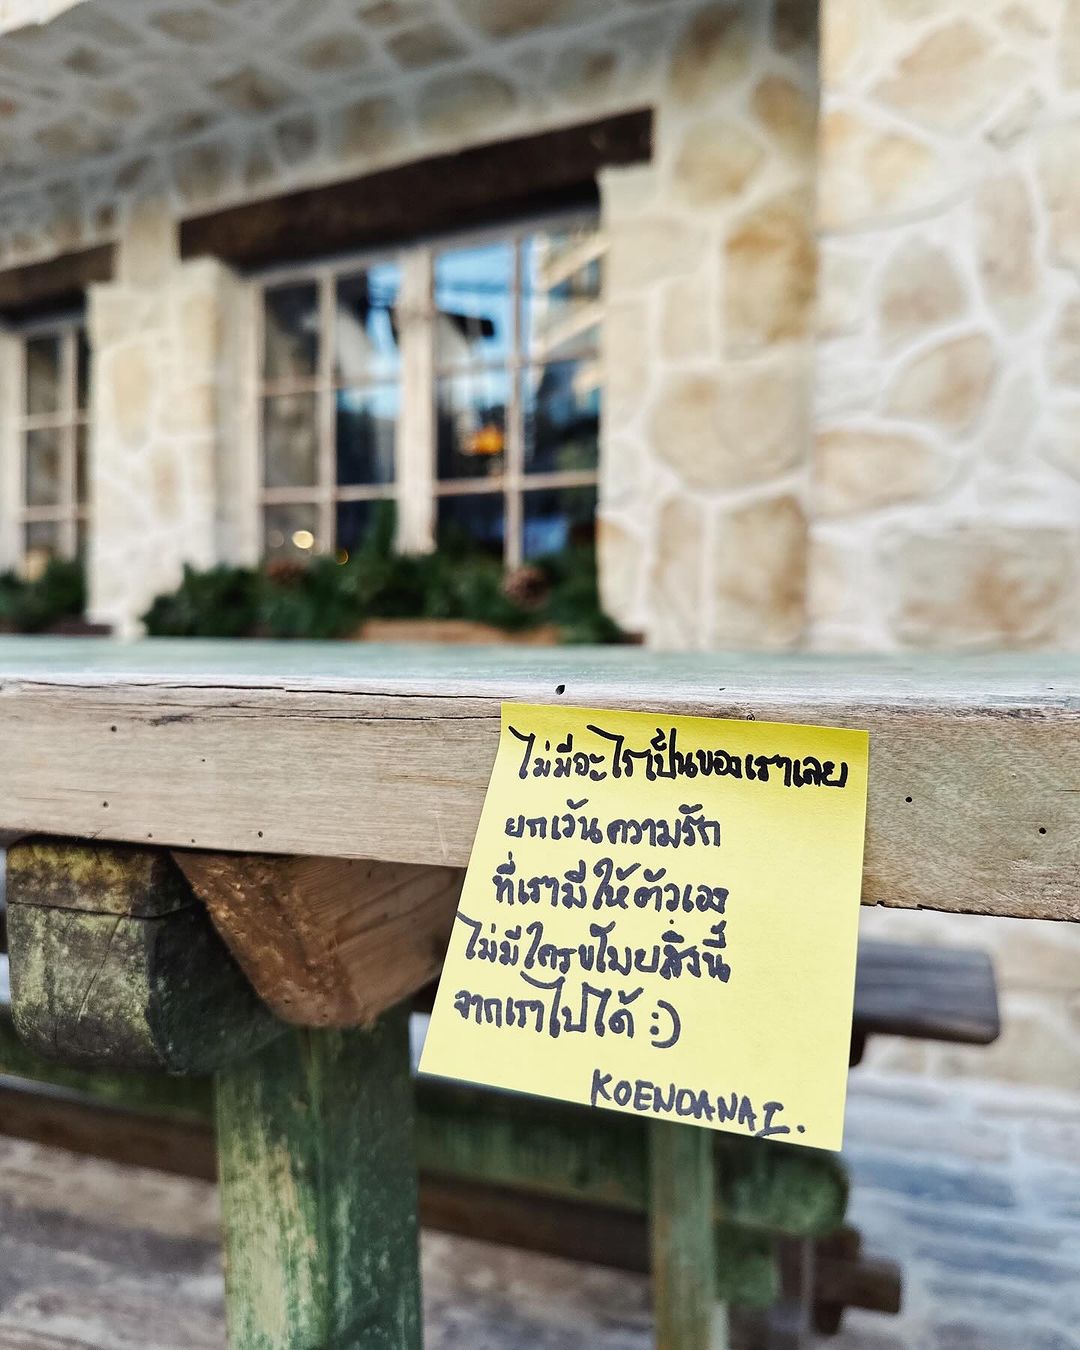 ไม่มีอะไรเป็นของเราเลย
ยกเว้นความรัก
ที่เรามีให้ตัวเอง
ไม่มีใครขโมยสิ่งนี้
จากเราไปได้ :)
KOENDANAI.